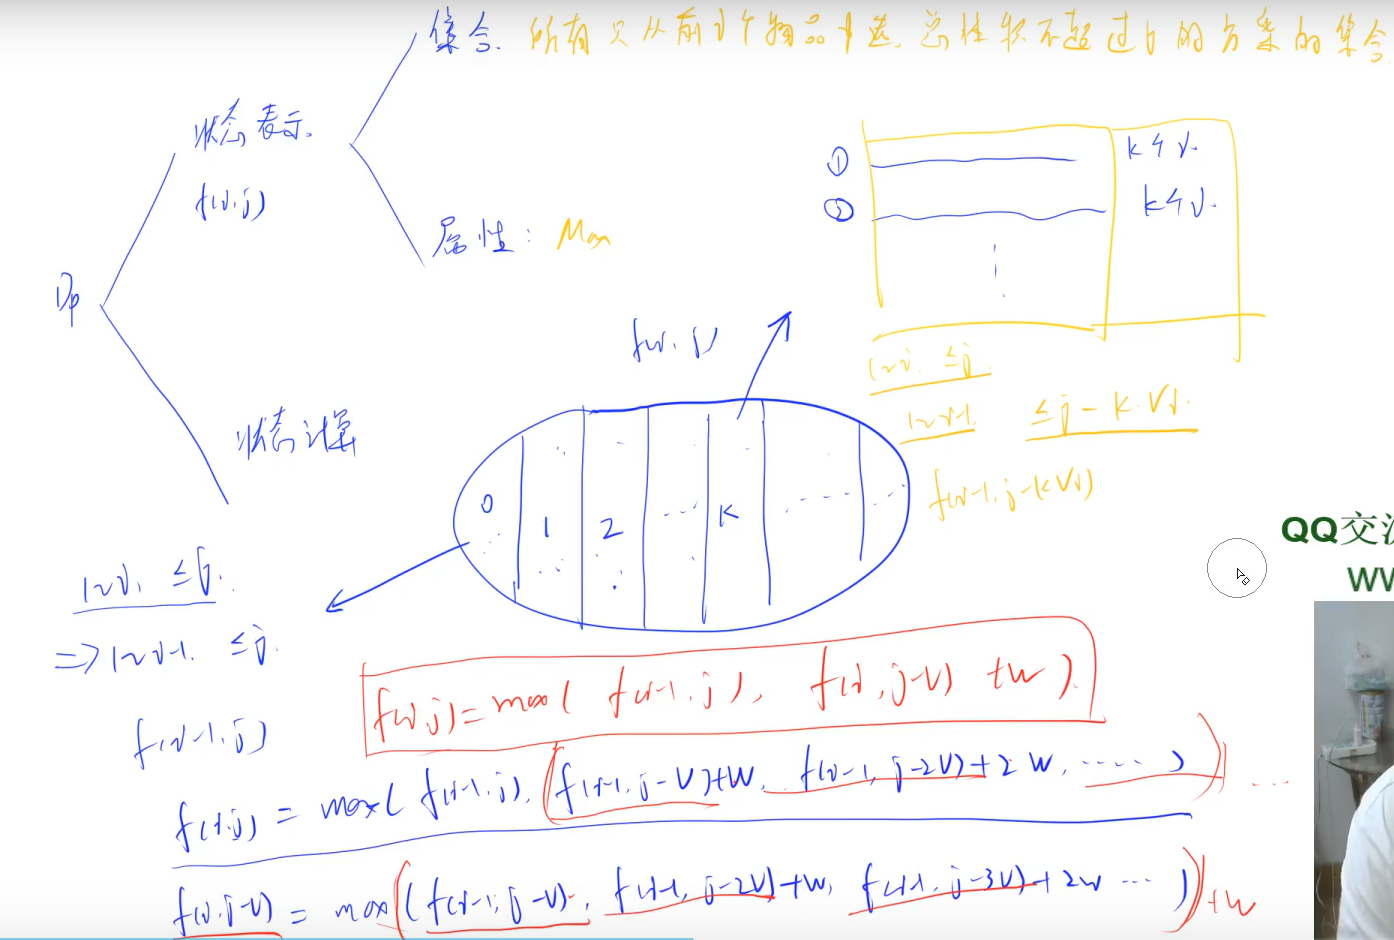 集合. 所有只从前i个物品中选, 总体积不超过j的方案的集合.
状态表示.
f(i,j)
属性: Max
Dp
状态计算
① k个i.
② k个i.
1~i. ≤j
1~i-1. ≤j-k·Vi.
f(i-1, j-kVi)
f(i, j)
0 1 2 K
1~i. ≤j.
=> 1~i-1. ≤j.
f(i-1, j)
f(i,j) = max( f(i-1, j), f(i, j-v) +w ).
f(i,j) = max( f(i-1, j), f(i-1, j-v)+w, f(i-1, j-2v)+2w, ..... ) ...
f(i, j-v) = max( f(i-1, j-v), f(i-1, j-2v)+w, f(i-1, j-3v)+2w ... ) +w
QQ交
WW